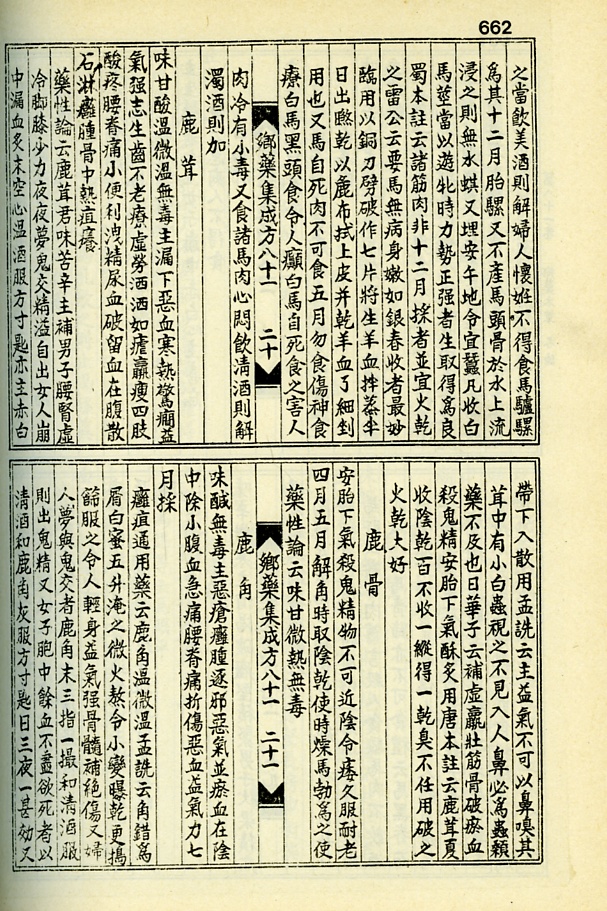 662
之當飲美酒則解婦人懷姙不得食馬驢騾
爲其十二月胎騾又不產馬頭骨於水上流
浸之則無水蜞又埋安午地令宜蠶凡收白
馬莖當以遊牝時力勢正强者生取得爲良
蜀本註云諸筋肉非十二月採者並宜火乾
之雷公云要馬無病身嫩如銀春收者最妙
臨用以銅刀劈破作七片將生羊血拌蒸半
日出晒乾以麁布拭上皮并乾羊血了細剉
用也又馬自死肉不可食五月勿食傷神食
療白馬黑頭食令人癲白馬自死食之害人
鄕藥集成方八十一 二十
肉冷有小毒又食諸馬肉心悶飲淸酒則解
濁酒則加
鹿茸
味甘酸溫微溫無毒主漏下惡血寒熱驚癇益
氣强志生齒不老療虛勞洒洒如瘧羸瘦四肢
酸疼腰脊痛小便利洩精尿血破留血在腹散
石淋癰腫骨中熱疽癢
藥性論云鹿茸君味苦辛主補男子腰腎虛
冷脚膝少力夜夜夢鬼交精溢自出女人崩
中漏血炙末空心溫酒服方寸匙亦主赤白
帶下入散用孟詵云主益氣不可以鼻嗅其
茸中有小白蟲視之不見入人鼻必爲蟲顙
藥不及也日華子云補虛羸壯筋骨破瘀血
殺鬼精安胎下氣酥炙用唐本註云鹿茸夏
收陰乾百不收一縱得一乾臭不任用破之
火乾大好
鹿骨
安胎下氣殺鬼精物不可近陰令痿久服耐老
四月五月解角時取陰乾使時燥馬勃爲之使
藥性論云味甘微熱無毒
鄕藥集成方八十一 二十一
鹿角
味鹹無毒主惡瘡癰腫逐邪惡氣並瘀血在陰
中除小腹血急痛腰脊痛折傷惡血益氣力七
月採
癰疽通用藥云鹿角溫微溫孟詵云角錯爲
屑白蜜五升淹之微火熬令小變曝乾更搗
篩服之令人輕身益氣强骨髓補絕傷又婦
人夢與鬼交者鹿角末三指一撮和淸酒服
則出鬼精又女子胞中餘血不盡欲死者以
淸酒和鹿角灰服方寸匙日三夜一甚効又